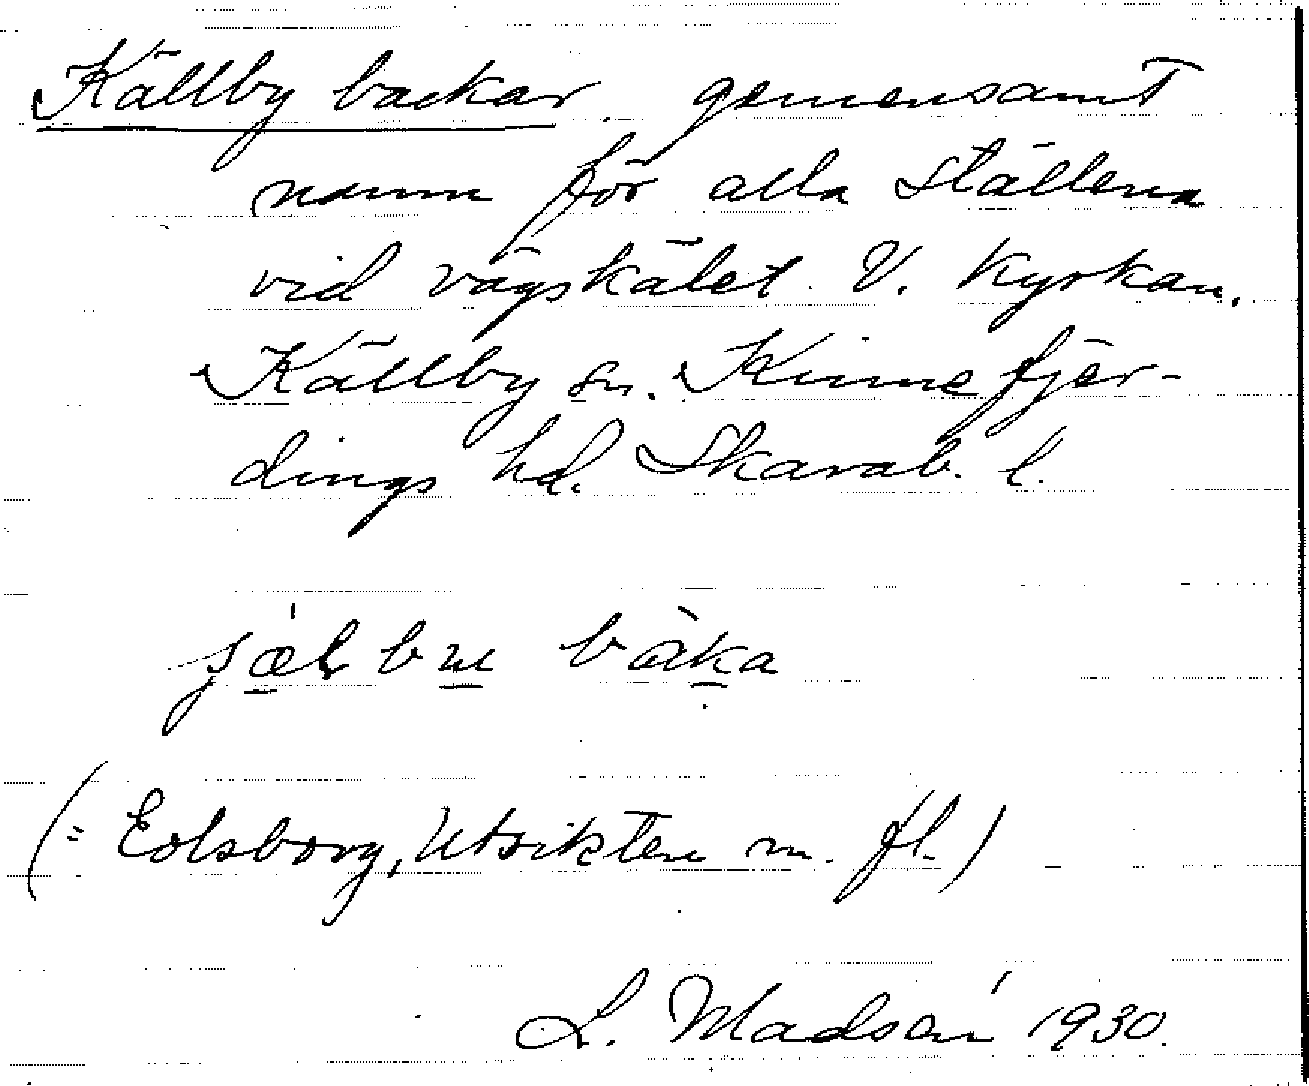 Källby backar gemensamt
namn för alla ställena
vid vägskälet V. Kyrkan.
Källby sn. Kinnefjer-
dings hd. Skarab. l.
bàka
(= Eolsborg, Utsikten m. fl.)
L. Madsén 1930.